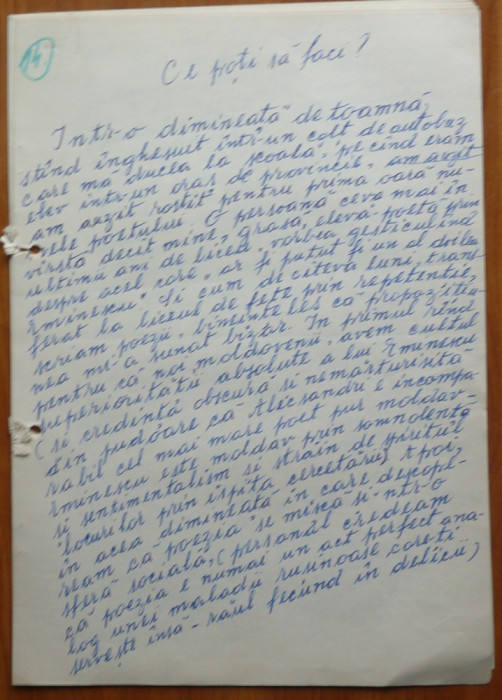 14.
Ce poți să faci?
Într-o dimineață de toamnă,
stând înghesuit într-un colț de autobuz
care mă ducea la școală, pe cînd eram
elev într-un oraș de provincie, am avut
am auzit rostit pentru prima oară nu-
mele poetului O persoană ceva mai în
vîrstă decît mine, grasă, elevă-poetă prin
ultimii ani de liceu, vorbea gesticulînd
despre acel care „ar fi putut fi un al doilea
Eminescu". Și cum de cîteva luni, trans-
ferat la liceul de fete prin repetenție,
scriam poezii, bineînțeles că propozițiu-
nea mi-a sunat bizar. În primul rînd
pentru că noi moldovenii, avem cultul
superiorității absolute a lui Eminescu
(și credința obscură și nemărturisită
din pudoare că Alecsandri e incompa-
rabil cel mai mare poet pur moldav-
Eminescu este moldav prin somnolență
și sentimentalism și străin de spiritul
locurilor prin ispita cercetării). Apoi
în acea dimineață în care descope-
ream că poezia se mișcă și într-o
sferă socială, (personal credeam
că poezia e numai un act perfect ana-
log unei maladii rușinoase care-ți
servește însă - răul fecund în deliciu)